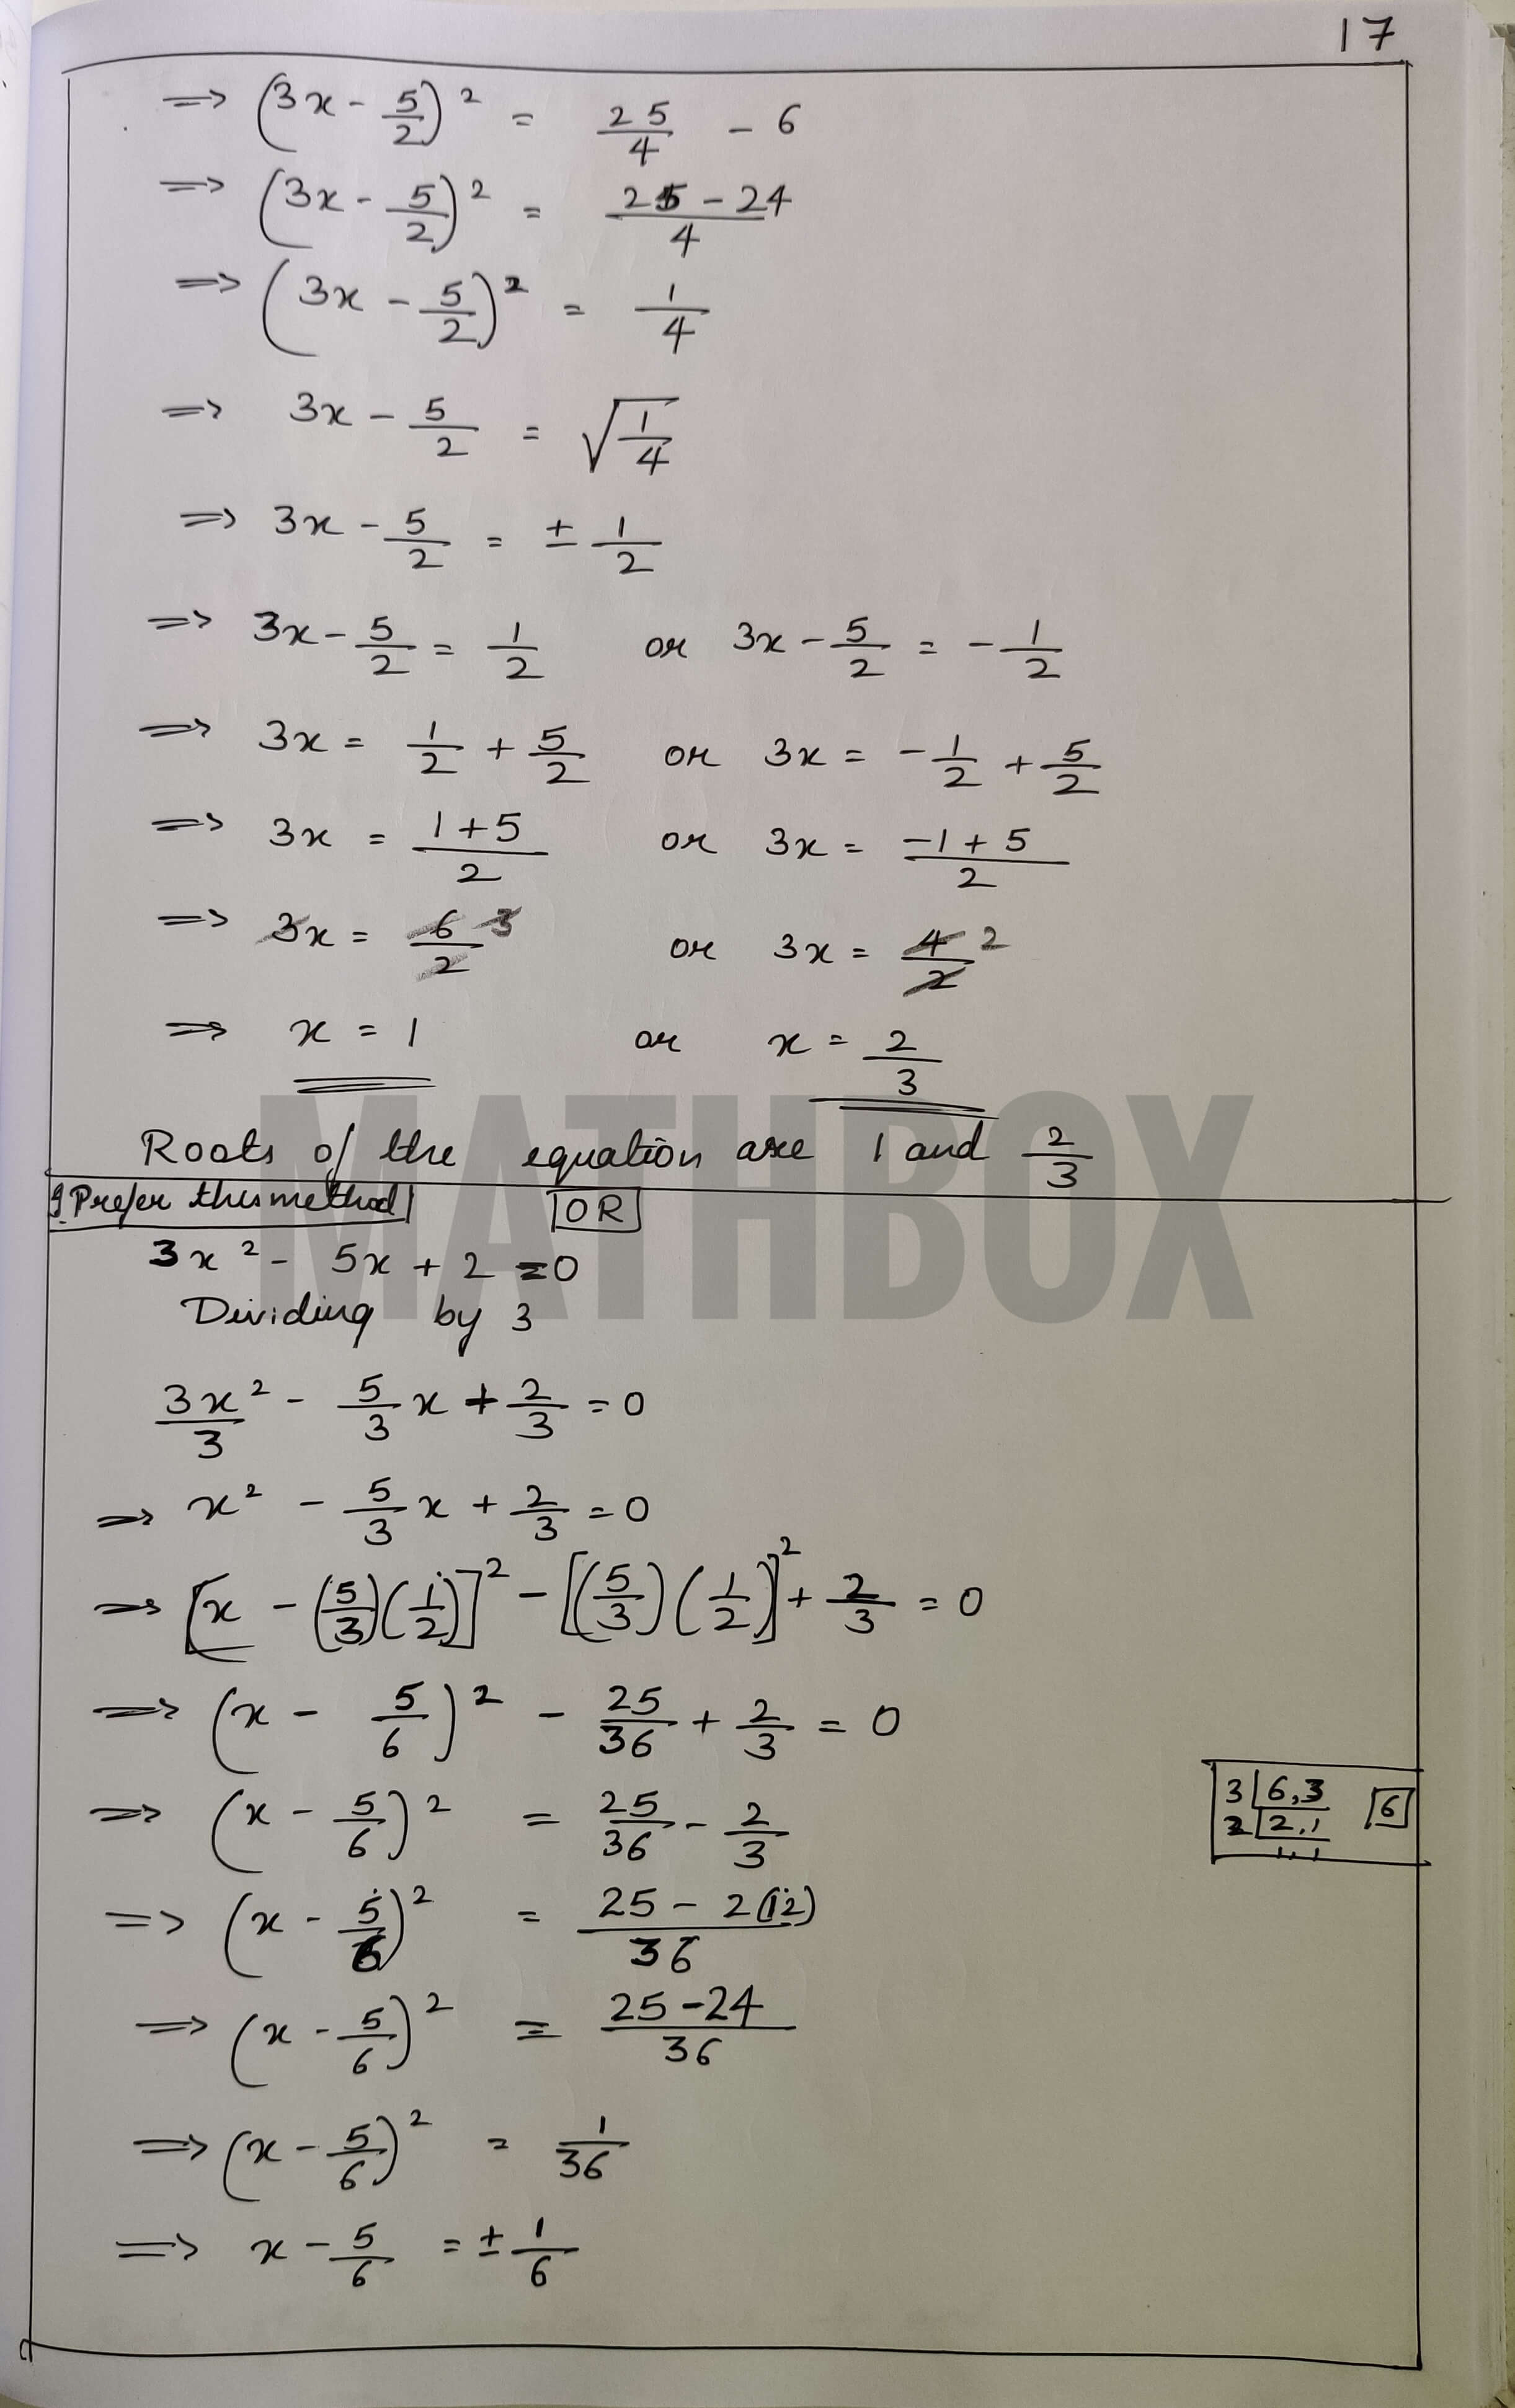 17
=> (3x - 5/2)² = 25/4 - 6
=> (3x - 5/2)² = 25 - 24/4
=> (3x - 5/2)² = 1/4
=> 3x - 5/2 = √1/4
=> 3x - 5/2 = ± 1/2
=> 3x - 5/2 = 1/2 or 3x - 5/2 = - 1/2
=> 3x = 1/2 + 5/2 or 3x = - 1/2 + 5/2
=> 3x = 1+5/2 or 3x = -1+5/2
=> 3x = 6/2 3 or 3x = 4/2 2
=> x = 1 or x = 2/3
Roots of the equation are 1 and 2/3
I Prefer this method OR
3x² - 5x + 2 = 0
Dividing by 3
3x²/3 - 5/3 x + 2/3 = 0
=> x² - 5/3 x + 2/3 = 0
=> [x - (5/3)(1/2)]² - [(5/3)(1/2)]² + 2/3 = 0
=> (x - 5/6)² - 25/36 + 2/3 = 0
=> (x - 5/6)² = 25/36 - 2/3
3 | 6,3 6
2 | 2,1
1,1
=> (x - 5/6)² = 25 - 2(12)/36
=> (x - 5/6)² = 25 - 24/36
=> (x - 5/6)² = 1/36
=> x - 5/6 = ± 1/6
MATHBOX